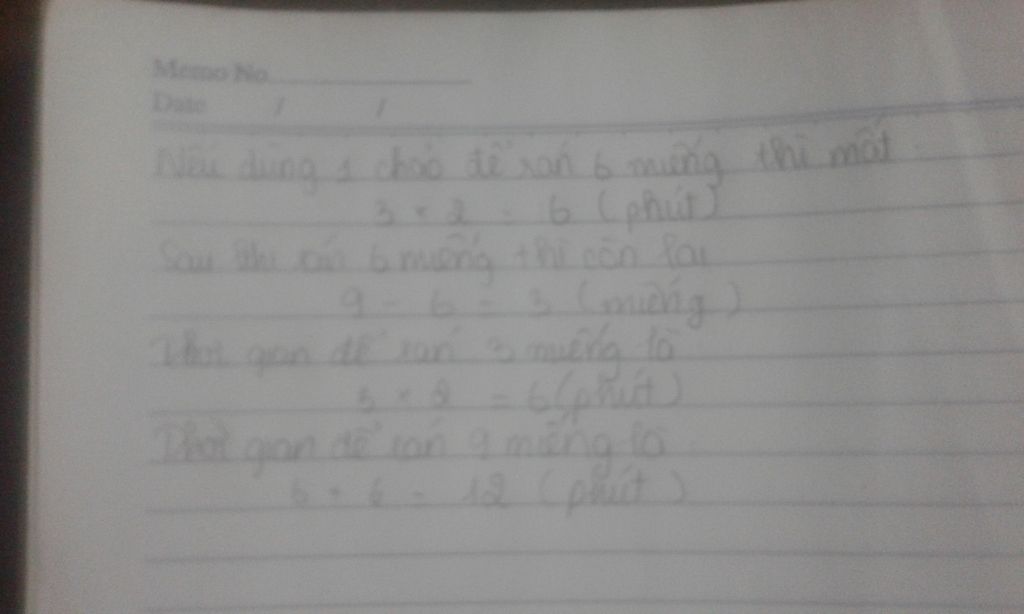 Memo No.
Date / /
Nếu dùng 1 chảo để rán 6 miếng thì mất
3 × 2 = 6 (phút)
Sau khi rán 6 miếng thì còn lại
9 - 6 = 3 (miếng)
Thời gian để rán 3 miếng là
3 × 2 = 6 (phút)
Thời gian để rán 9 miếng là
6 + 6 = 12 (phút)